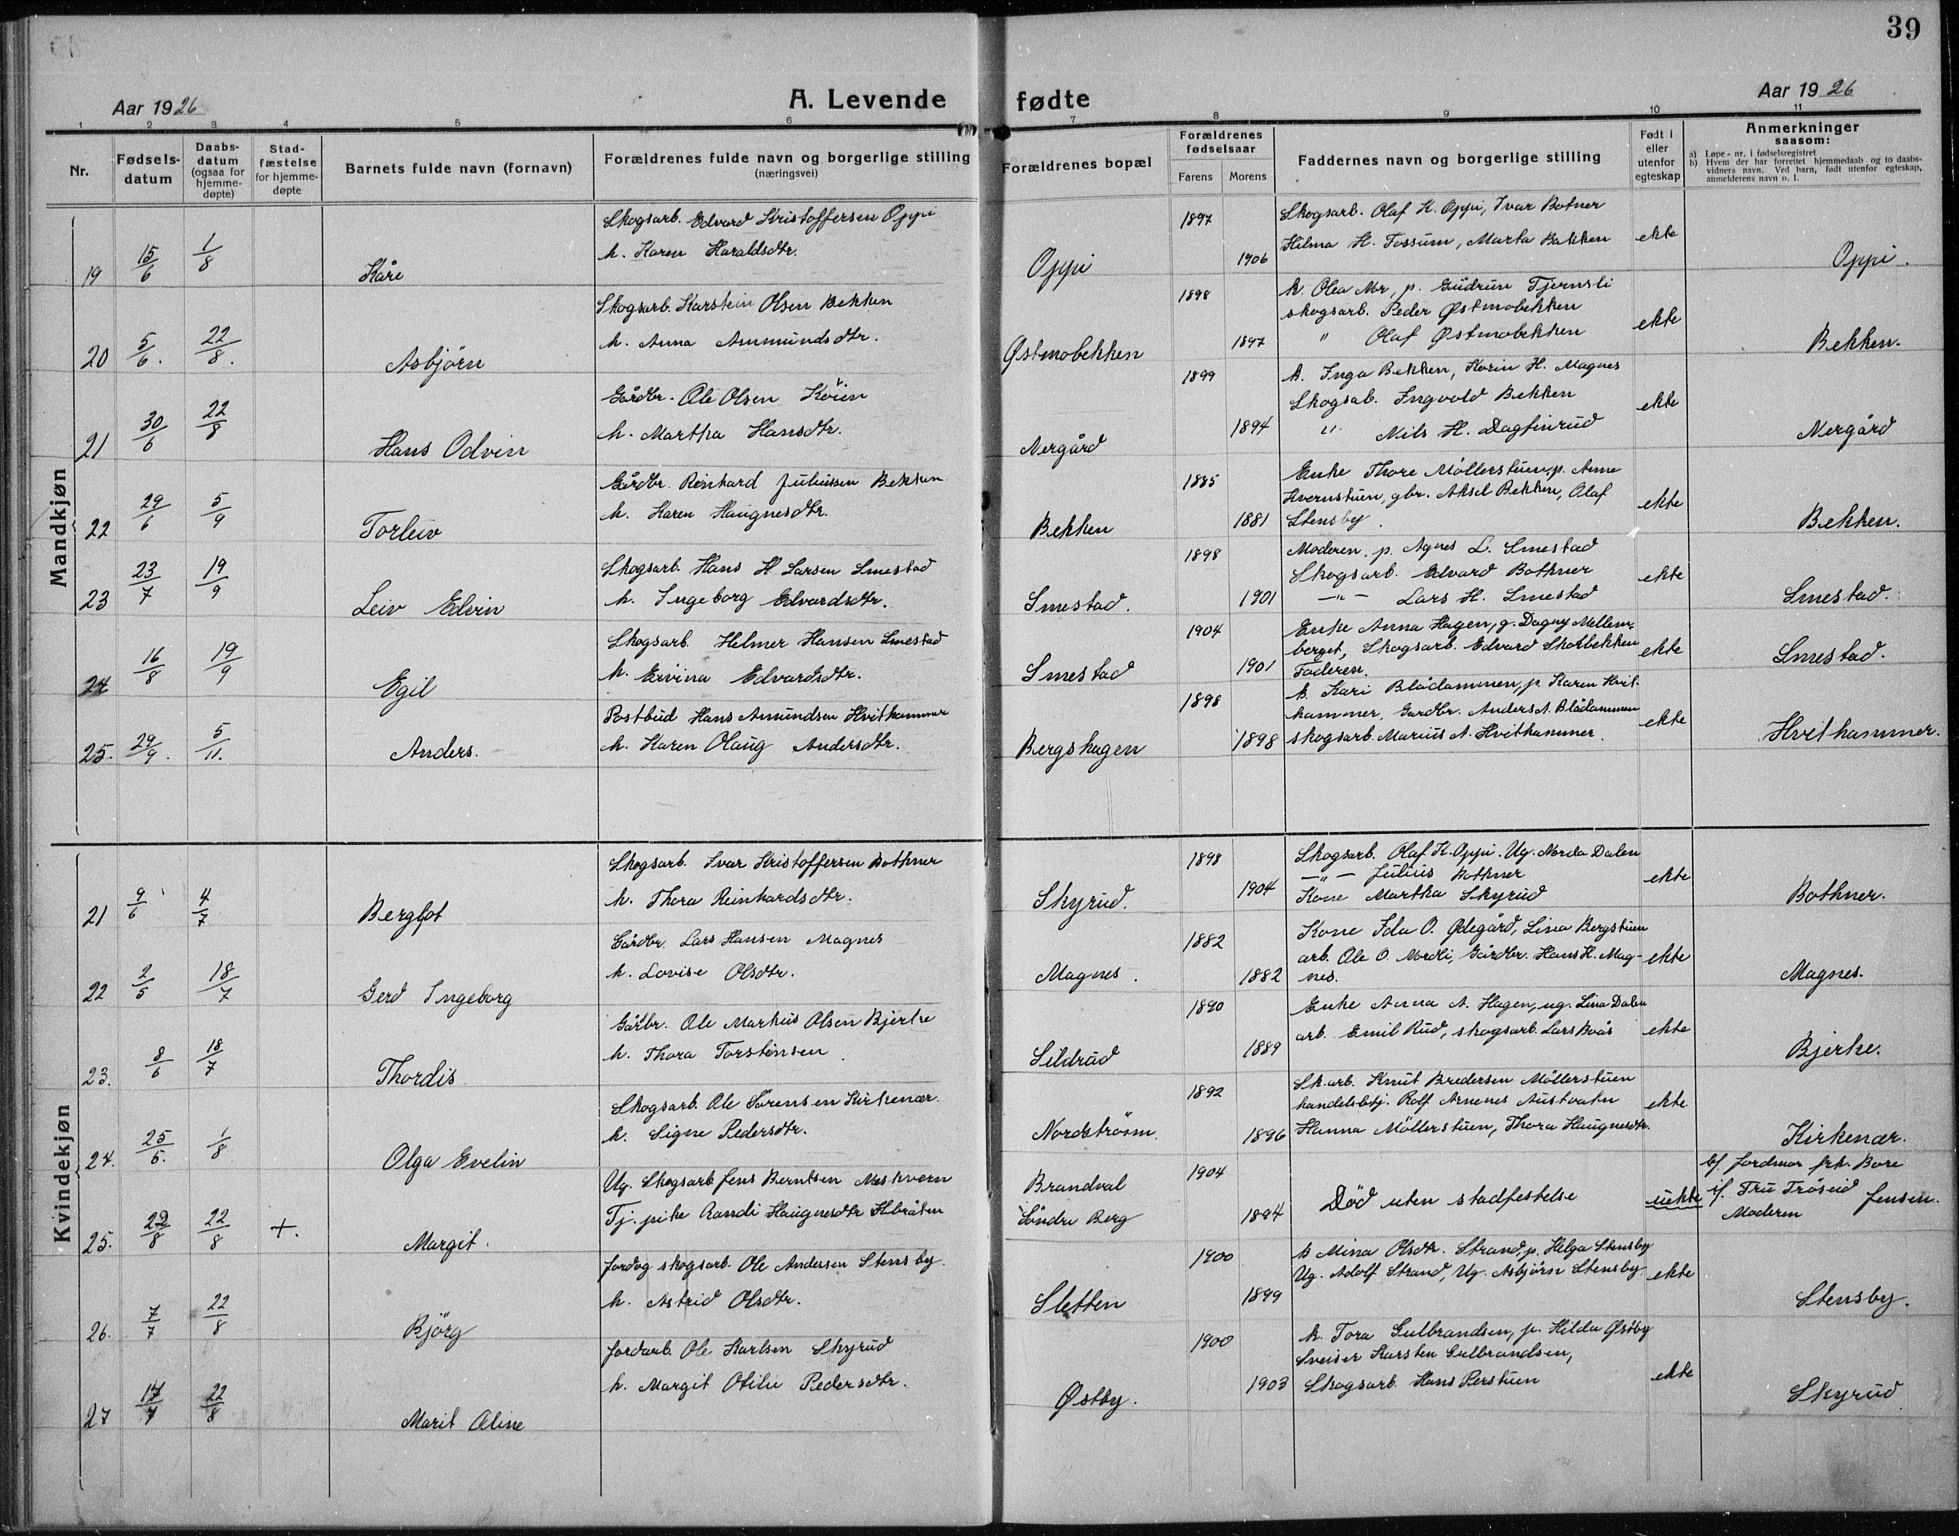 39
Aar 1926
A. Levende fødte
Aar 1926
1 2 3 4 5 6 7 8 9 10 11
Nr.
Fødsels-
datum
Daabs-
datum
(ogsaa for
hjemme-
døpte)
Stad-
fæstelse
for hjemme-
døpte
Barnets fulde navn (fornavn)
Forældrenes fulde navn og borgerlige stilling
(næringsvei)
Forældrenes bopæl
Forældrenes
fødselsaar
Farens
Morens
Faddernes navn og borgerlige stilling
Født i
eller
utenfor
egteskap
Anmerkninger
saasom:
a) Løpe-nr. i fødselsregistret
b) Hvem der har forrettet hjemmedaab og to daabs-
vidners navn. Ved barn, født utenfor egteskap,
anmelderens navn o. l.
Mandkjøn
19 15/6 1/8 Kåre
Skogsarb. Edvard Kristoffersen Oppi
h. Karen Haraldsdtr.
Oppi 1897 1906
Skogsarb. Olaf K. Oppi, Ivar Botner
Hilma H. Fossum, Marta Bakken
ekte Oppi.
20 5/6. 22/8. Asbjørn
Skogsarb. Karstein Olsen Bekken
h. Anna Aumundsdtr.
Østmobekken 1898 1897
k. Olea Mor, p. Gudrun Tjernsli
skogsarb. Peder Østmobekken
" Olaf Østmobekken
ekte Bekken.
21 30/6 22/8 Hans Odvin
Gårdbr. Ole Olsen Köien
h. Martha Hansdtr.
Nergård 1899 1894
k. Inga Bekken, Karin H. Magnes
Skogsab. Ingvold Bekken
" Nils H. Dagfinrud
ekte Nergård
22 29/6 5/9 Torleiv
Gårdbr. Reinhard Juliussen Bekken
h. Karen Haugnesdtr.
Bekken 1885 1881
Enke Thore Möllerstuen, p. Anne
Kvernstuen, gbr. Aksel Bekken, Olaf
Stensby.
ekte Bekken.
23 23/7 19/9 Leiv Edvin
Skogsarb. Hans H Larsen Smestad
h. Ingeborg Edvardsdtr.
Smestad. 1898 1901
Moderen, p. Agnes L. Smestad
Skogsarb. Edvard Bothner
—"— Lars H. Smestad
ekte Smestad.
24 16/8 19/9 Egil
Skogsarb. Helmer Hansen Smestad
h. Ervina Edvardsdtr.
Smestad 1904 1901
Enke Anna Hagen, g. Dagny Mellem-
berget, Skogsarb. Edvard Skotbekken
Faderen.
ekte Smestad.
25. 29/9. 5/11. Anders.
Postbud Hans Amundsen Hvithammer
h. Karen Olaug Andersdtr.
Bergshagen 1898 1898
k. Kari Blådammen, p. Karen Hvit-
hammer, Gardbr. Anders A. Blådammen
skogsarb. Marius A. Hvithammer.
ekte Hvithammer.
Kvindekjøn
21 9/6 4/7 Bergljot
Skogsarb. Ivar Kristoffersen Bothner
h. Thora Reinhardsdtr.
Skyrud. 1898 1904
Skogsarb. Olaf K. Oppi. Ug. Norda Dalen
—"— Julius Bothner
Kone Martha Skyrud
ekte Bothner.
22 2/5 18/7 Gerd Ingeborg
Gårdbr. Lars Hansen Magnes
h. Lovise Olsdtr.
Magnes. 1882 1882
Kone Ida O. Ødegård, Lina Bergstuen
arb. Ole O. Nordli, Gårdbr. Hans H. Mag-
nes.
ekte Magnes.
23. 8/6 18/7 Thordis
Gårbr. Ole Markus Olsen Bjerke
h. Thora Torstensen.
Sildrud 1890 1889
Enke Anna A. Hagen, ug. Lina Dalen
arb. Emil Rud, skogsarb. Lars Boås
ekte Bjerke.
24. 25/5. 1/8 Olga Evelin
Skogsarb. Ole Sørensen Kirkenær.
h. Signe Pedersdtr.
Nordstrøm. 1892 1896
Sk.arb. Knut Bredersen Möllerstuen
handelsbetj. Rolf Arnenes Austvatn
Hanna Möllerstuen, Thora Haugnesdtr.
ekte Kirkenær.
25. 29/8 22/8 +. Margit.
Ug. Skogsarb Jens Berntsen Meskvern
Tj. pike Randi Haugnesdtr Kbråten
Brandval
Söndre Berg
1904 1894
Död uten stadfestelse
uekte
b/. Jordmor frk. Bore
i/. Fru Tröseid Jensen.
Moderen
26. 7/7 22/8 Bjørg
Jordog skogsarb. Ole Andersen Stensby.
h. Astrid Olsdtr.
Sletten 1900 1899
k Mina Olsdtr. Strand, p. Helga Stensby
Ug. Adolf Strand, Ug. Asbjörn Stensby.
ekte Stensby.
27 17/7 22/8 Marit Oline
Jordarb. Ole Karlsen Skyrud
h. Margit Otilie Pedersdtr.
Østby. 1900 1903
k. Tora Gulbrandsen, p. Hilda Østby
Sveiser Karsten Gulbrandsen,
Skogsarb. Hans Perstuen
ekte Skyrud